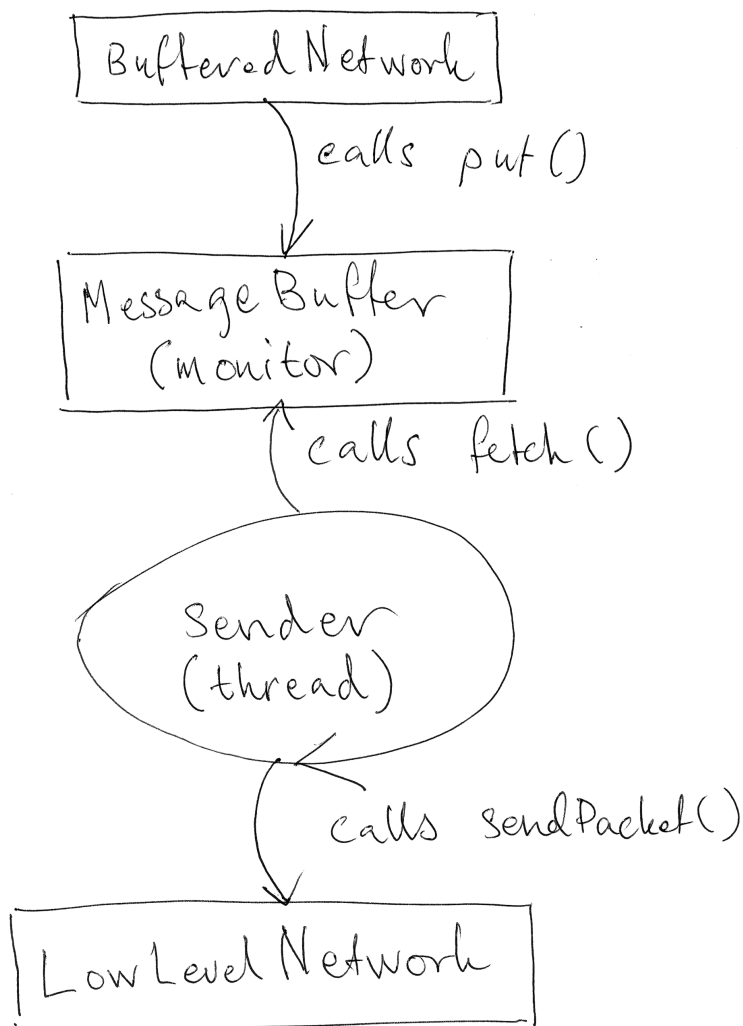 BufferedNetwork
calls put()
MessageBuffer
(monitor)
calls fetch()
Sender
(thread)
calls sendPacket()
LowLevelNetwork